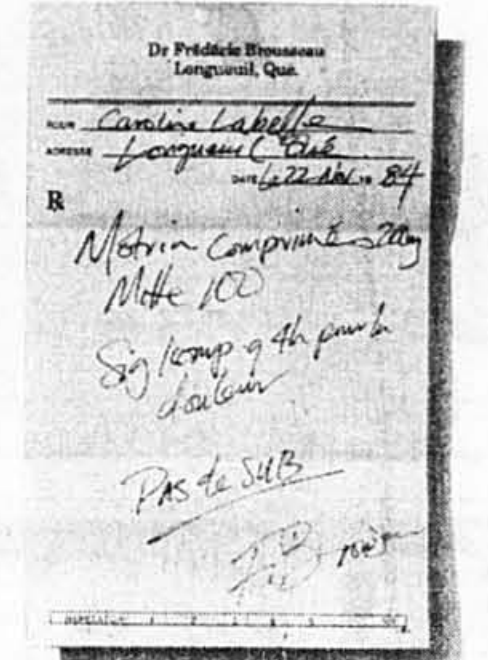 Dr Frédéric Brousseau
Longueuil, Qué.
POUR Caroline Labelle
ADRESSE Longueuil Qué
DATE le 22 19 84
℞
Motrin comprimés 200mg
Mitte 100
Sig 1 comp q 4h pour la
douleur
PAS de SUB